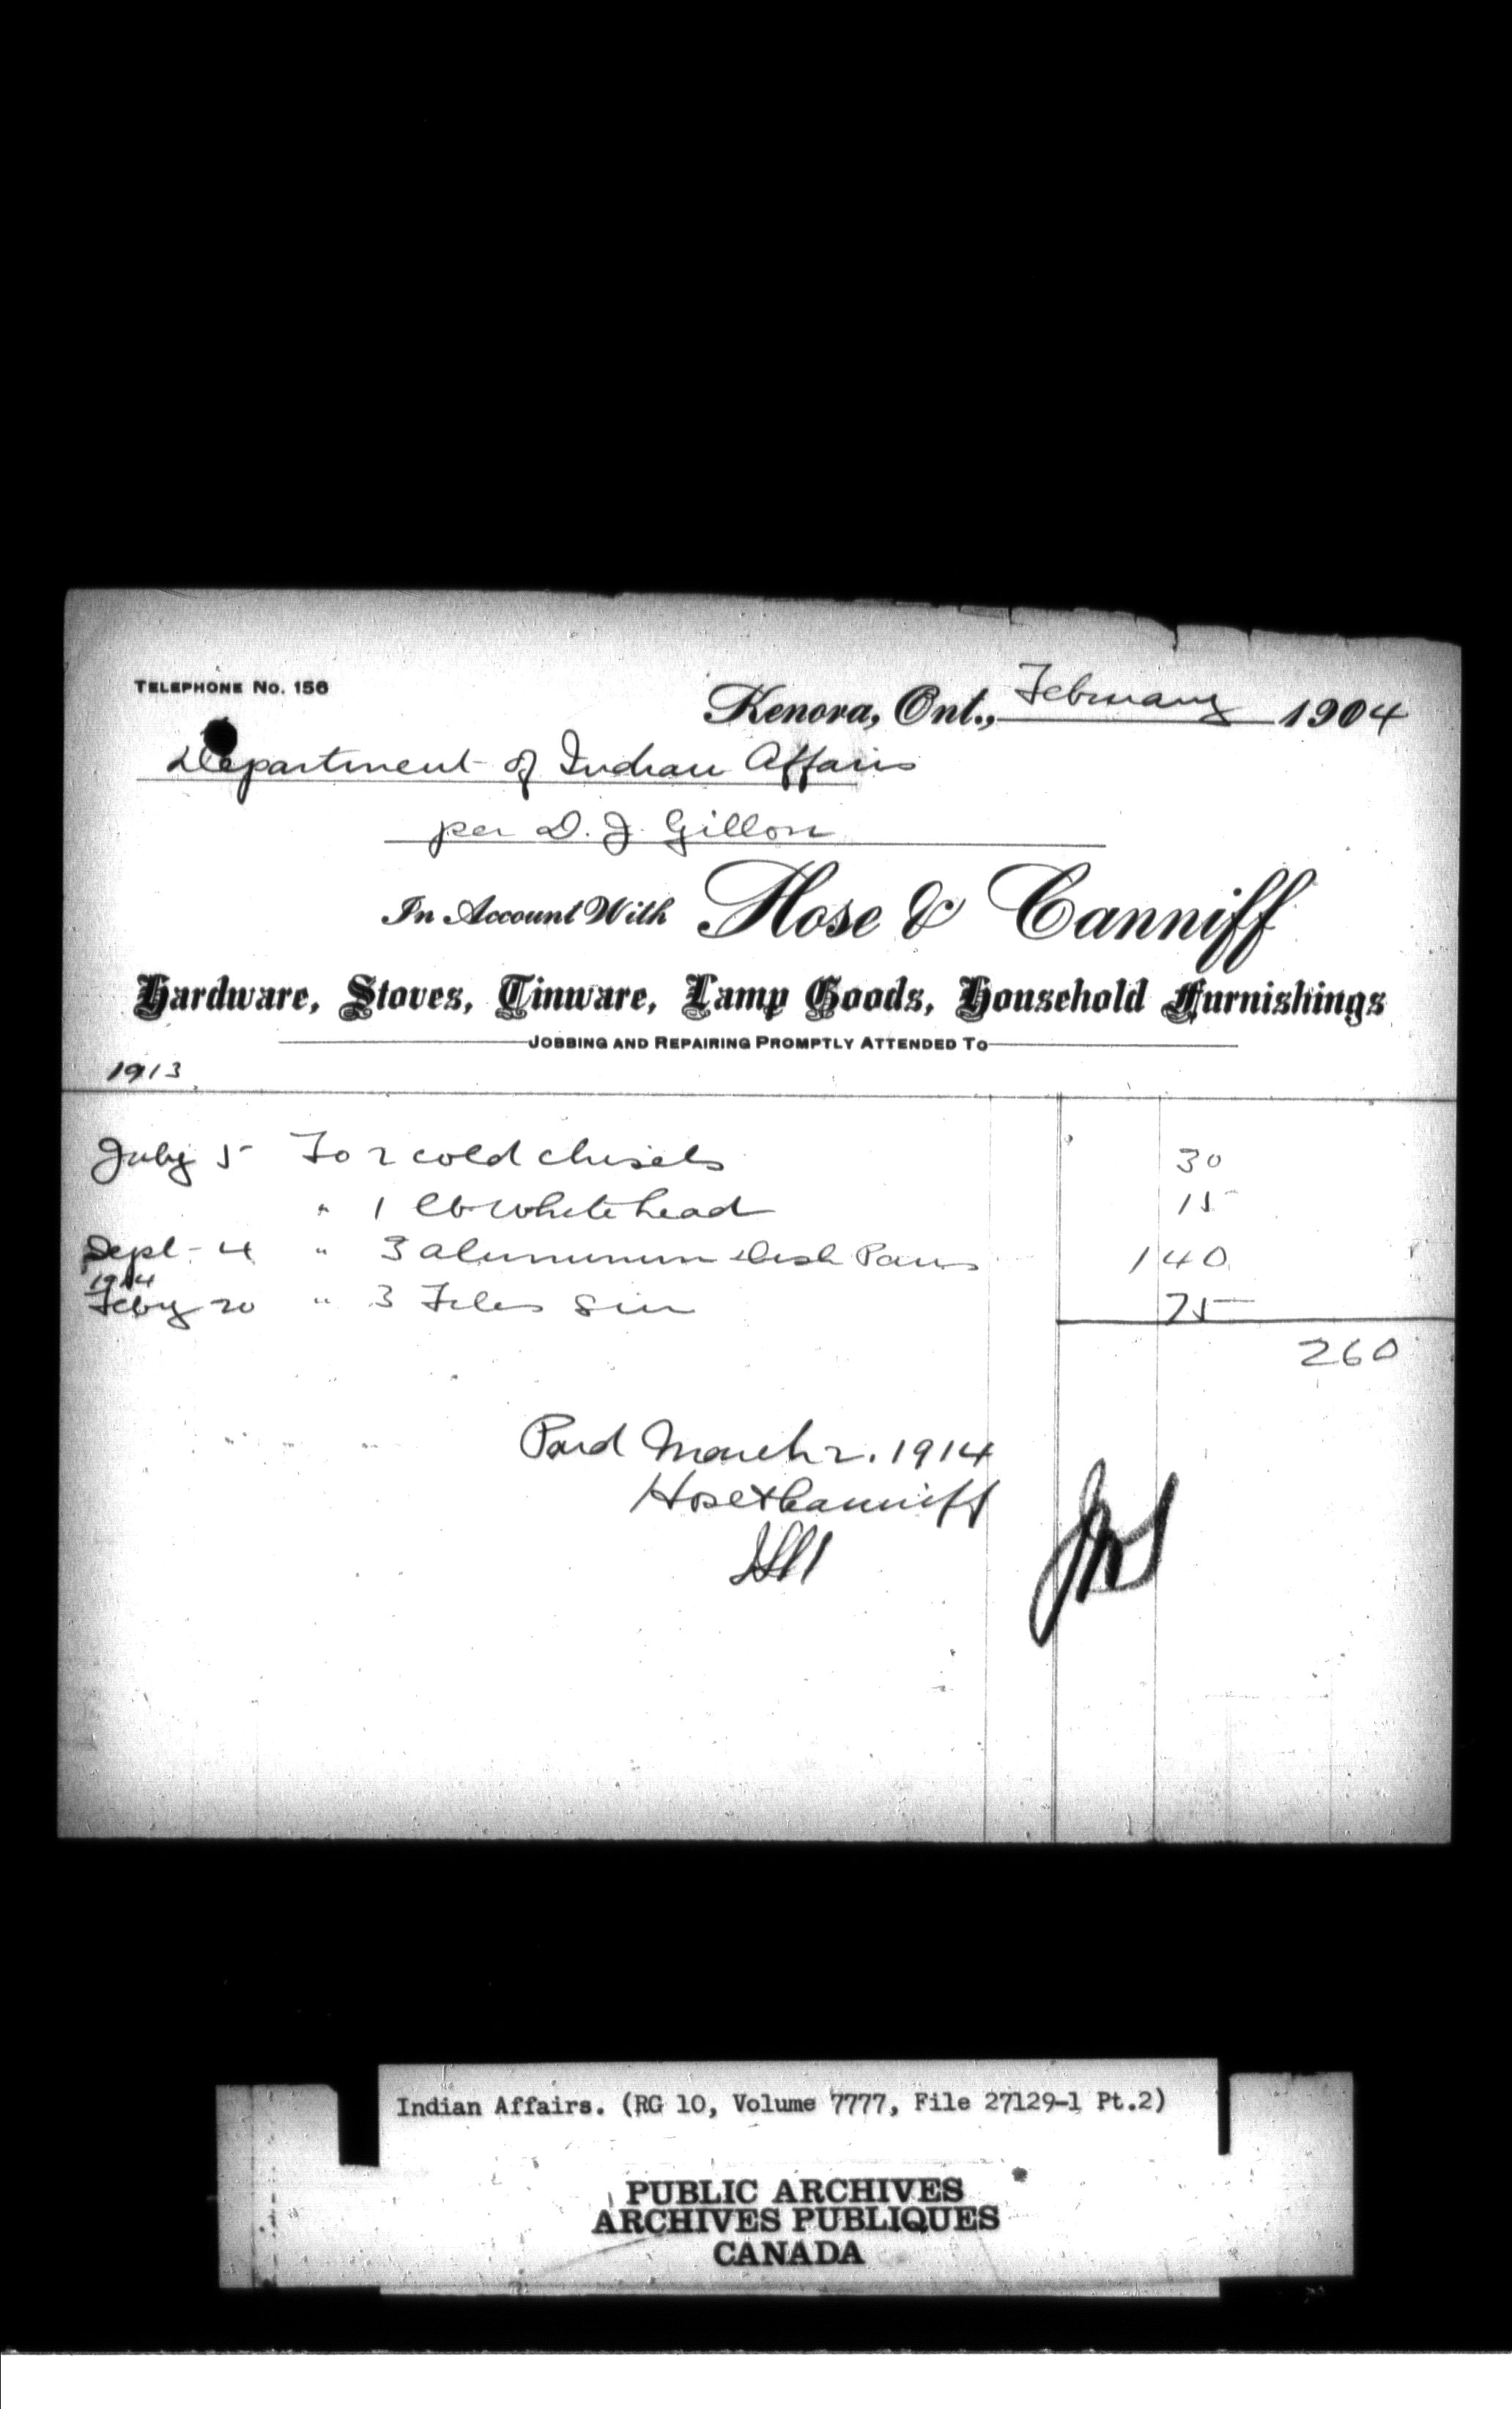 TELEPHONE NO. 156
Kenora, Ont., February 1904
Department of Indian Affairs
per D. J. Gillon
In Account With Hose & Canniff
Hardware, Stoves, Tinware, Lamp Goods, Household Furnishings
JOBBING AND REPAIRING PROMPTLY ATTENDED TO
1913
July 5 To 2 cold chisels 30
" 1 lb white lead 15
Sept - 4 " 3 aluminum dish Pans 1 40
1914
Feby 20 " 3 Files 8in 75
2 60
Paid March 2. 1914
Hose & Canniff
Indian Affairs. (RG 10, Volume 7777, File 27129-1 Pt.2)
PUBLIC ARCHIVES
ARCHIVES PUBLIQUES
CANADA